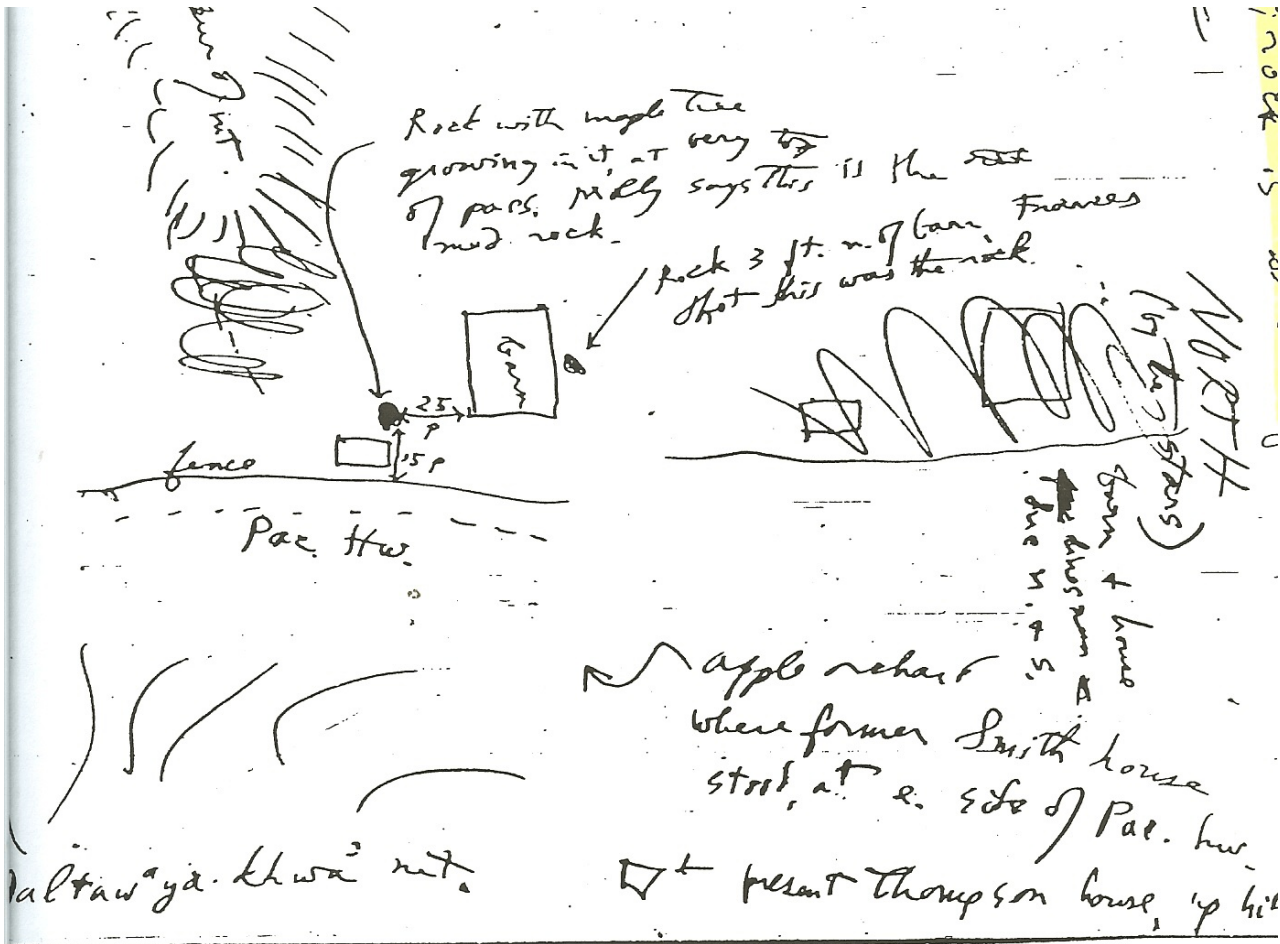 mt.
Rock with maple tree
growing in it, at very top
of pass. Molly says this is the
med rock.
Rock 3 ft. n. of barn, Frances
thot this was the rock
barn
25
p
15 p
fence
Pac. Hw.
NORTH
(by the stars)
barn + house
due n. + s.
apple orchard
where former Smith house
stood, at e. side of Pac. hw.
present Thompson house, up
mt.